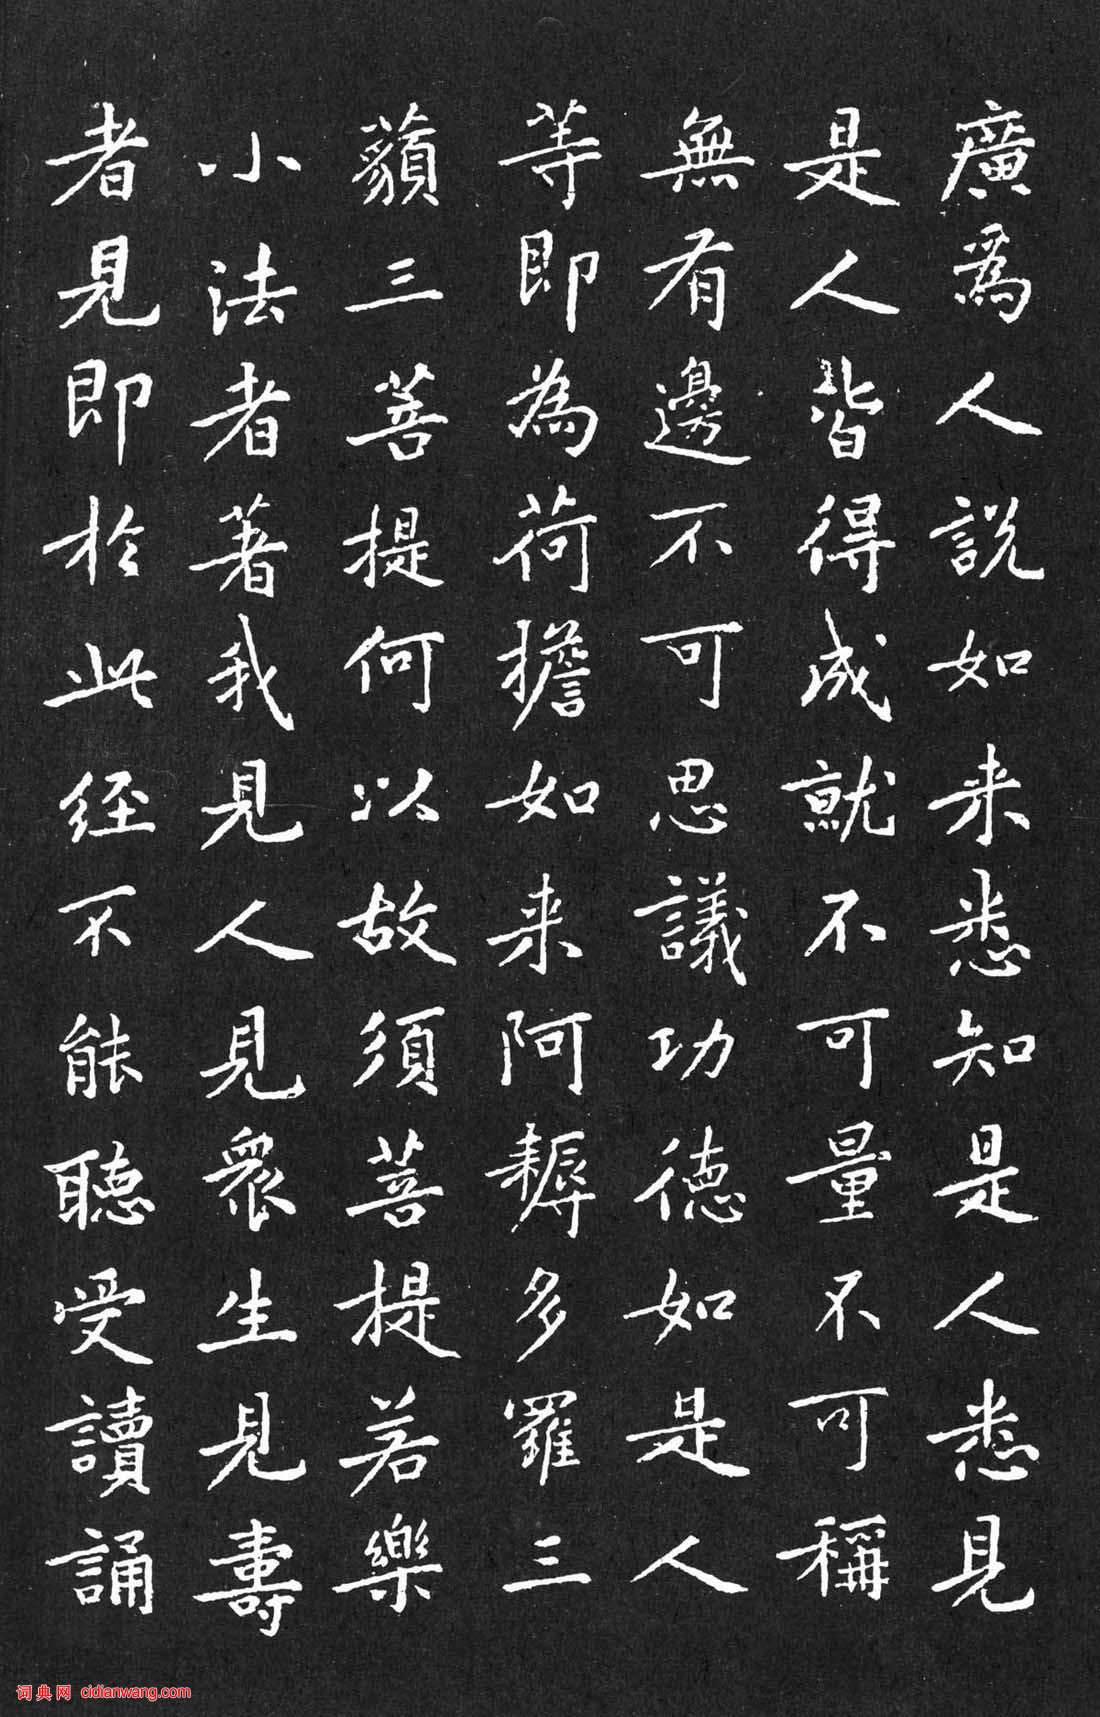 廣為人說如来悉知是人悉見
是人皆得成就不可量不可稱
無有邊不可思議功德如是人
等即為荷擔如来阿耨多羅三
藐三菩提何以故須菩提若樂
小法者著我見人見眾生見壽
者見即於此経不能聽受讀誦
词典网 cidianwang.com